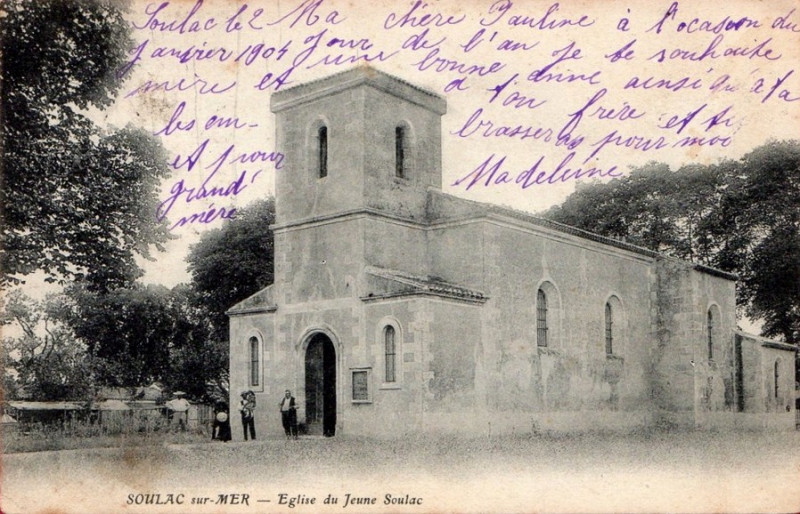 Soulac le 2 Ma chère Pauline à l'ocasion du
Janvier 1904 Jour de l'an je te souhaite
une bonne anne ainsi qu'a ta
mère et a ton frère et tu
les em- brasseras pour moi
et pour
grand' Madeleine
mère
SOULAC sur-MER — Eglise du Jeune Soulac